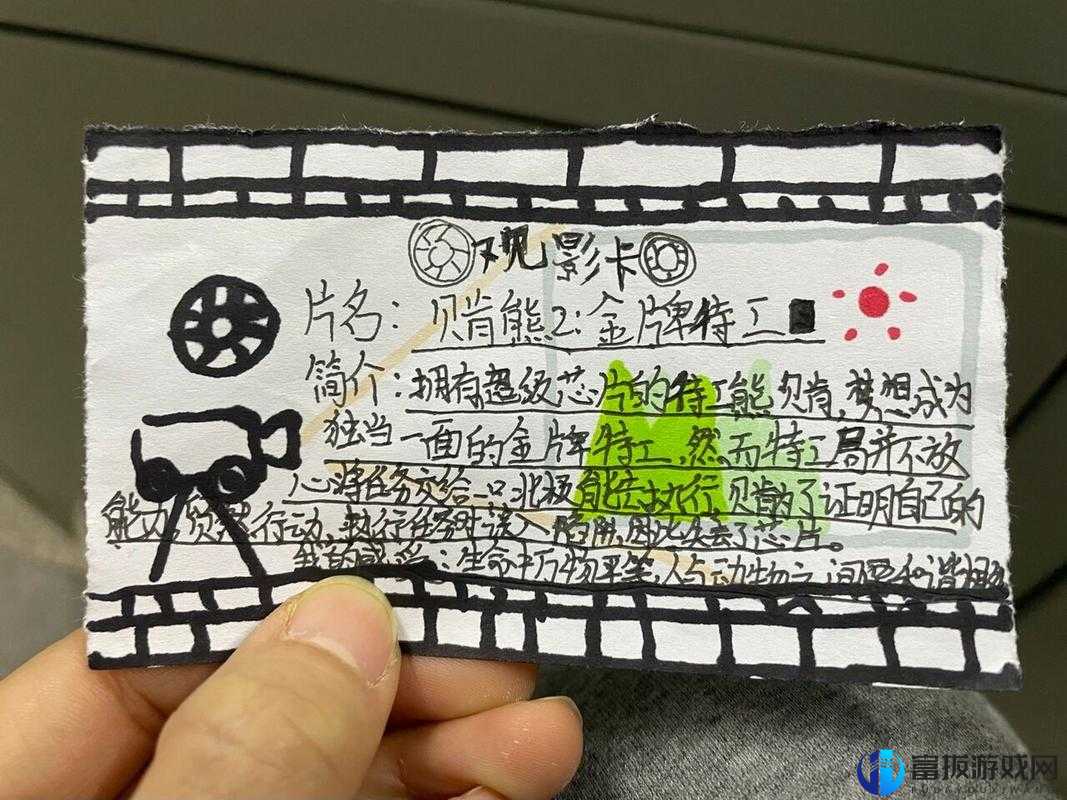 观影卡
片名：贝肯熊2:金牌特工
简介：拥有超级芯片的特工熊贝肯，梦想成为
独当一面的金牌特工，然而特工局并不放
心将任务交给一只北极熊去执行，贝肯为了证明自己的
能力，贸然行动，执行任务时误入陷阱，因此失去了芯片。
我的感受：生命中万物平等，人与动物之间要和谐相处
富扳游戏网